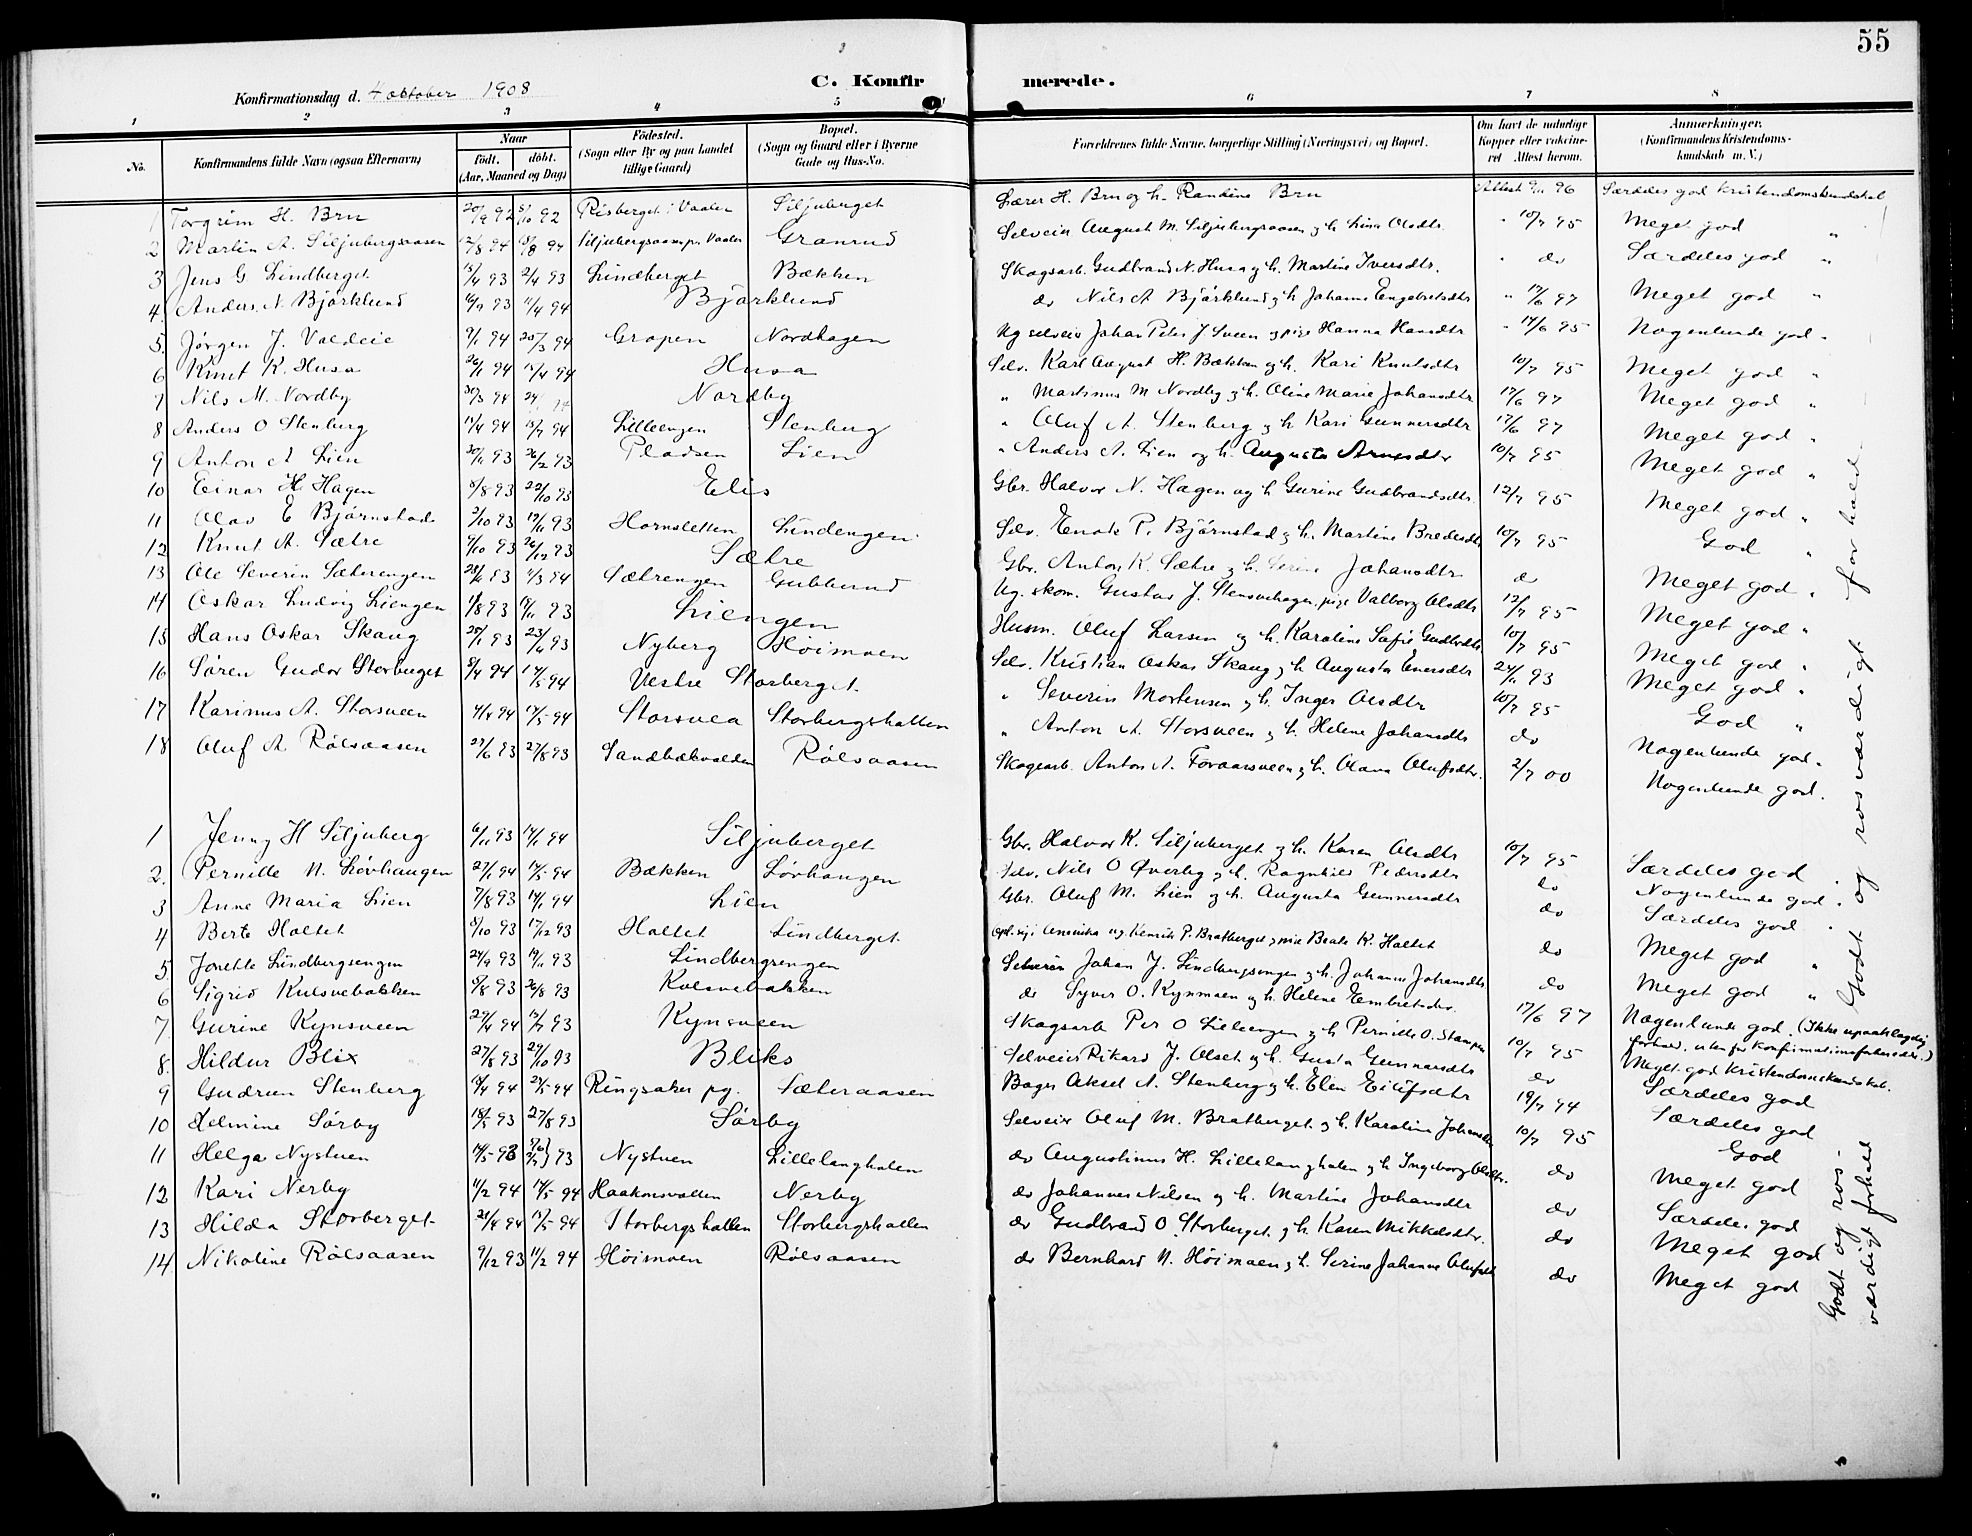 55
Konfirmationsdag d. 4 oktober 1908
C. Konfirmerede.
1 2 3 4 5 6 7 8
No.
Konfirmandens fulde Navn (ogsaa Efternavn)
Naar
født. døbt.
(Aar, Maaned og Dag)
Fødested.
(Sogn eller By og paa Landet tillige Gaard)
Bopæl.
(Sogn og Gaard eller i Byerne Gade og Hus-No.
Forældrenes fulde Navne, borgerlige Stilling (Næringsvei) og Bopæl.
Om havt de naturlige Kopper eller vaccineret Attest herom.
Anmærkninger.
(Konfirmandens Kristendomskundskab m. V.)
1 Torgrim H. Bru 20/9 92 92 Risberget i Vaaler Siljuberget Lærer H. Bru og h. Randine Bru Attest 96 Særdeles god Kristendomskundskab
2 Martin A. Siljubergsaasen 12/8 94 94 Siljubergsaasen Vaaler Granrud Selveier August M. Siljubergsaasen og h. Lina Olsdtr. " 10/7 95 Meget god "
3 Jens G Lindberget 15/4 93 2/4 93 Lindberget Bækken Skogsarb. Gudbrand N. Husa og h. Martine Iversdtr. " do Særdeles god "
4. Anders N. Bjørklund 16/9 93 11/4 94 Bjørklund do Nils A Bjørklund og h. Johanne Engebretsdtr " 17/6 97 Meget god "
5. Jørgen J. Valdeie 9/1 94 25/3 94 Grapen Nordhagen Ug selveier Johan Peter J Sveen og pige Hanna Hansdtr " 14/6 95 Nogenlunde god "
6 Knut K. Husa 26/1 94 94 Husa Selv. Karl August H. Bækken og h. Kari Knutsdtr 10/7 95 Meget god "
7 Nils M. Nordby 30/3 94 Nordby " Martinus M Nordby og h. Oline Marie Johansdtr 17/6 97 Meget god "
8 Anders O Stenberg 17/4 94 15/7 94 Lilleengen Stenberg " Oluf A. Stenberg og h. Kari Gunnersdtr 17/6 97 Meget god "
9 Anton A Lien 93 26/2 93 Pladsen Lien " Anders A. Lien og h. Augusta Arnesdtr 10/7 95 Meget god "
10 Einar H. Hagen 8/8 93 22/10 93 Elis Gbr. Halvor N. Hagen og h Gurine Gudbrandsdtr. 12/7 95 Meget god "
11 Olav E Bjørnstad 2/10 93 19/11 93 Hornsletten Lindengen Selv. Enok P. Bjørnstad og h. Martine Bredesdtr 10/7 95 God "
12 Knut A. Sætre 9/10 93 26/12 93 Sætre Gbr. Anton K. Sætre og h. Serine Johansdtr do Meget god "
13 Ole Severin Sæterengen 93 11/3 94 Sætrengen Gubblund Ug. skom. Gustav J. Stensvehagen, pige Valborg Olsdtr 12/7 95 Meget god "
14 Oskar Ludvig Liengen 1/8 93 19/11 93 Liengen Husm. Oluf Larsen og h. Karoline Sofie Gudbrdtr 10/7 95 Meget god "
15 Hans Oskar Skaug 25/1 93 23/4 93 Nyberg Høimoen Selv. Kristian Oskar Skaug og h. Augusta Enersdtr 24/11 93 Meget god "
16 Søren Gudor Storberget 8/4 94 14/5 94 Vestre Storberget " Severin Mortensen og h. Inger Olsdtr 10/7 95 God "
17 Karinus A. Storsveen 7/4 94 14/5 94 Storsvea Storbergshallen " Anton A. Storsveen og h. Helene Johansdtr do Nogenlunde god "
18 Oluf A Rølsaasen 27/6 93 27/8 93 Sandbækvolden Rølsaasen Skogsarb. Anton A. Foraarsveen og h. Olava Olufsdtr. 2/7 00 Nogenlunde god.
Godt og rosværdigt forhold
1 Jenny H Siljuberg 6/11 93 14/1 94 Siljuberget Gbr. Halvor K. Siljuberget og h. Karen Olsdtr 10/7 95 Særdeles god
2. Pernille N. Løvhaugen 27/1 94 14/5 94 Bækken Løvhaugen Selv. Nils O Øverby og h. Ragnhild Pedersdtr do Nogenlunde god "
3 Anne Maria Lien 7/8 93 14/1 94 Lien Gbr. Oluf M. Lien og h. Augusta Gunnersdtr do Særdeles god "
4 Berte Haltet 8/10 93 17/12 93 Haltet Lindberget Oph. sig i Amerika ug. Henrik P. Bratberget og pige Beate K. Haltet do Meget god "
5 Jonette Lindbergsengen 24/9 93 19/11 93 Lindbergsengen Selveier Johan J. Lindbergsengen og h. Johanne Johansdtr do Meget god "
6 Sigrid Kulsvebakken 8/8 93 26/8 93 Kolsvebakken do Syver O. Kynmoen og h. Helene Embretsdtr. 17/6 97 Nogenlunde god. (Ikke upaaklagelig forhold, utenfor Konfirmationsforberedelse.)
7. Gurine Kynsveen 29/4 94 15/7 93 Kynsveen Skogsarb Per O Lilleengen og h Pernille O. Stampen 10/7 95 Meget god Kristendomskundskab.
8. Hildur Blix 27/8 93 29/10 93 Bliks Selveier Rikard J. Olset og h. Gusta Gunnarsdtr do Særdeles god
9 Gudrun Stenberg 94 94 Ringsaker pg. Sæteraasen Bager Aksel A. Stenberg og h. Elen Eilifsdtr 19/7 94 Særdeles god
10 Helmine Sørby 18/5 93 27/8 93 Sørby Selveier Oluf M. Bratberget og h. Karoline Johansdtr 10/7 95 God
11 Helga Nystuen 14/5 93 93 Nystuen Lillelanghalen do Augustinus H. Lillelanghalen og h Ingeborg Olsdtr. do Meget god
12 Kari Nerby 11/2 94 14/5 94 Haakonsvollen Nerby do Johannes Nilsen og h. Martine Johansdtr do Særdeles god
13 Hilda Storberget 21/4 94 14/5 94 Storbergshallen Storbergshallen do Gudbrand O. Storberget og h. Karen Mikkelsdtr. do Meget god
14. Nikoline Rølsaasen 9/12 93 11/2 94 Høimoen Rølsaasen do Bernhard N. Høimoen og h. Serine Johanne Olufsdtr do Meget god
Godt og rosværdigt forhold